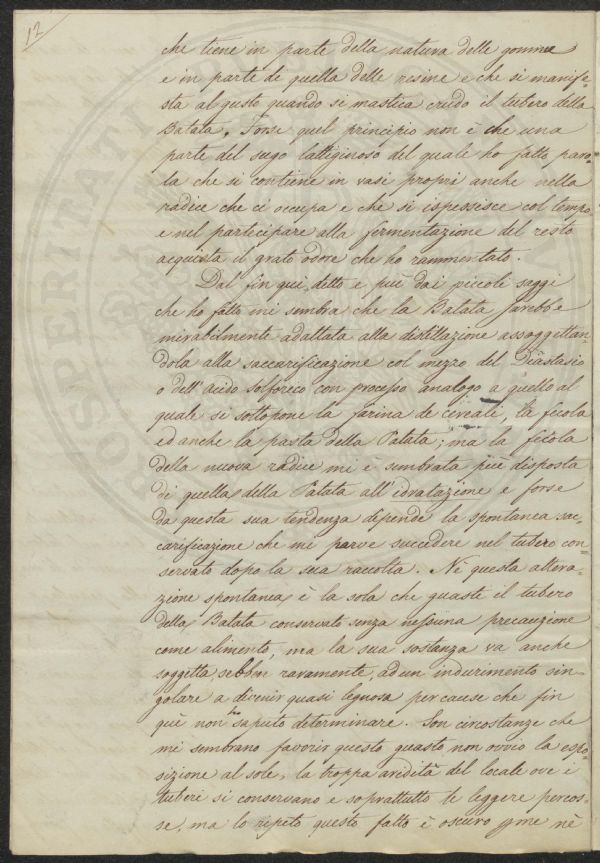 12
che tiene in parte della natura delle gomme
e in parte di quella delle resine e che si manife-
sta al gusto quando si mastica crudo il tubero della
Batata. Forse quel principio non è che una
parte del sugo lattiginoso del quale ho fatto paro-
la che si contiene in vasi proprii anche nella
radice che ci occupa e che si ispessisce col tempo
e nel partecipare alla fermentazione del resto
acquista il grato odore che ho rammentato.
Dal fin qui detto e più dai piccoli saggi
che ho fatto mi sembra che la Batata sarebbe
mirabilmente adattata alla distillazione assoggettan
dola alla saccarificazione col mezzo del Diastasio
o dell'acido solforico con processo analogo a quello al
quale si sottopone la farina de cereali, la fecola
ed anche la pasta della Patata; ma la fecola
della nuova radice mi è sembrata più disposta
di quella della Patata all'idratazione e forse
da questa sua tendenza dipende la spontanea sac-
carificazione che mi parve succedere nel tubero con
servato dopo la sua raccolta. Nè questa altera-
zione spontanea è la sola che guasti il tubero
della Batata conservato senza nessuna precauzione
come alimento, ma la sua sostanza va anche
soggetta, sebben raramente, ad un indurimento sin-
golare a divenir quasi legnosa per cause che fin
quì non ho saputo determinare. Son circostanze che
mi sembrano favorir questo guasto non ovvio la espo-
sizione al sole, la troppa aridità del locale ove i
tuberi si conservano e soprattutto le leggere percos-
se, ma lo ripeto questo fatto è oscuro per me nè
PROSPERITATI PUBLICAE